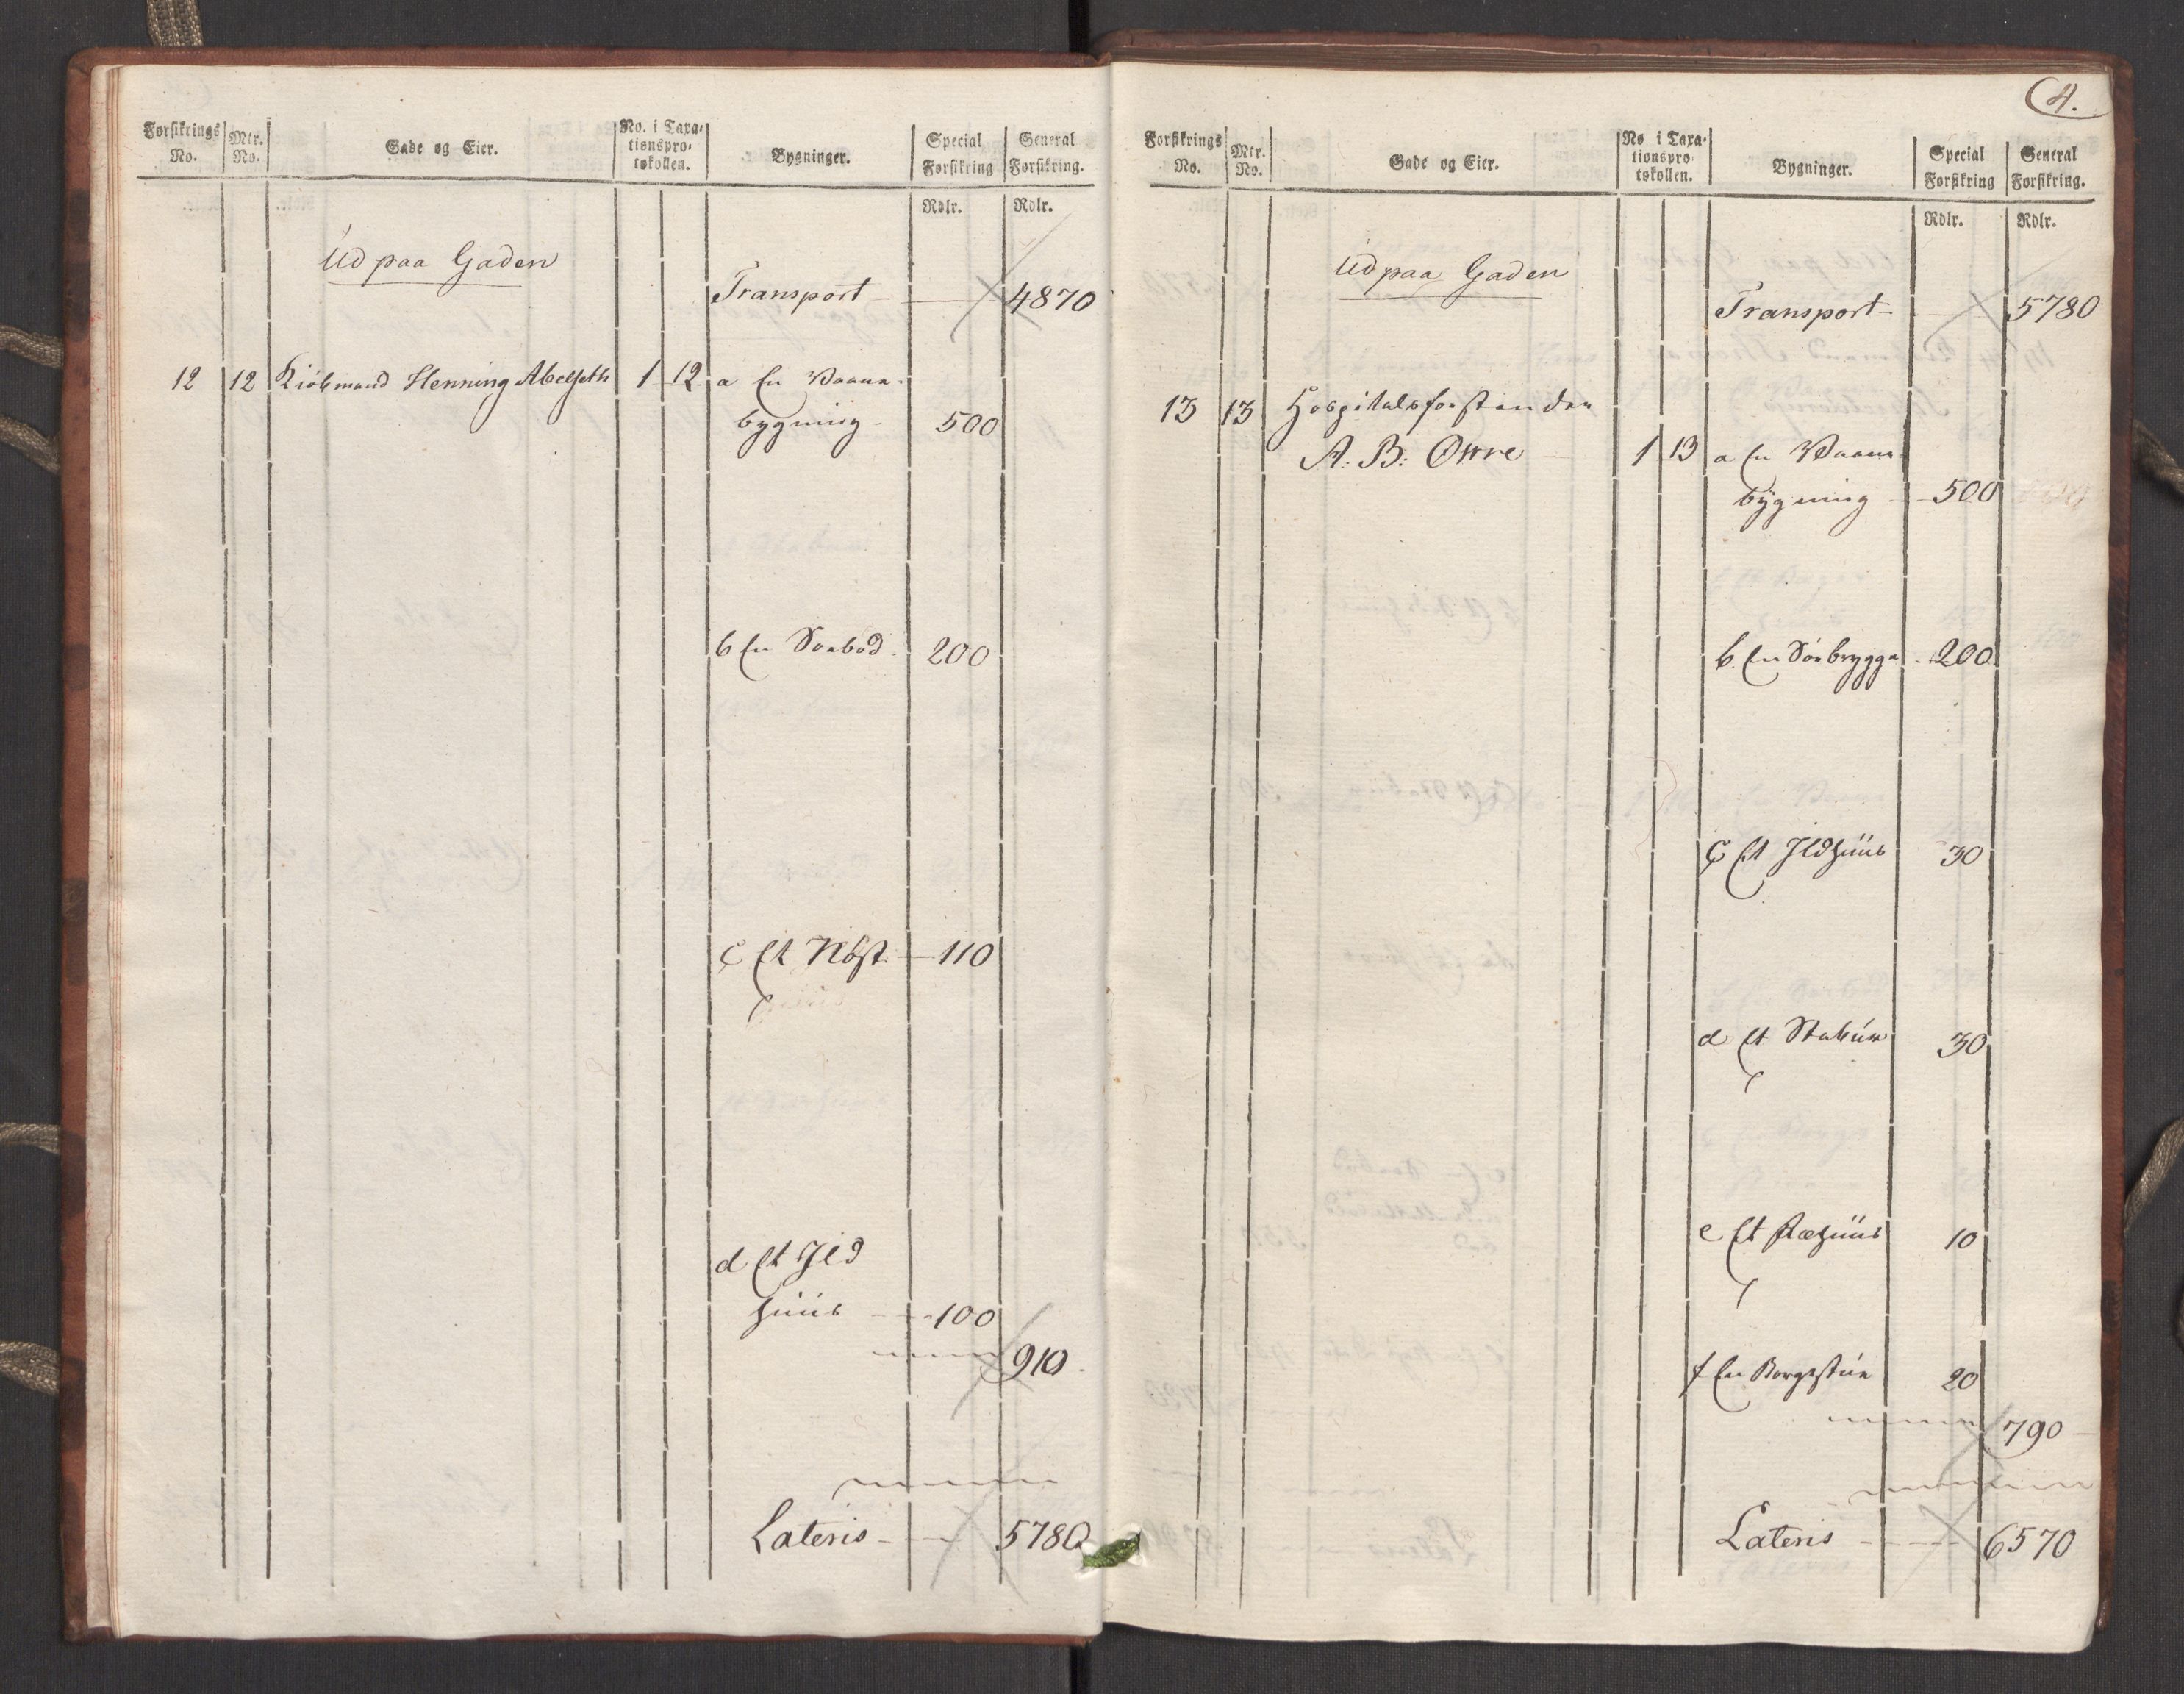 Forsikrings No.
Mtr. No.
Gade og Eier.
No. i Taxa-
tionspro-
tokollen.
Bygninger.
Special
Forsikring
General
Forsikring.
Rdlr.
Rdlr.
Ud paa Gaden
Transport 4870
12 12 Kiöbmand Henning Abelseth 1 12 a En Vaane-
bygning 500
b En Söebod 200
c Et 110
d Et Ild
huus 100
910
Lateris 5780
4.
Forsikrings No.
Mtr. No.
Gade og Eier.
No i Taxa-
tionspro-
tokollen.
Bygninger.
Special
Forsikring
General
Forsikring.
Rdlr.
Rdlr.
Ud paa Gaden
Transport 5780
13 13 Hospitalsforstander
A: B: Owre 1 13 a En Vaane-
bygning 500
b. En Söebrygge 200
c Et Ildhuus 30
d Et Stabur 30
e Et huus 10
f En Borgestue 20
790
Lateris 6570